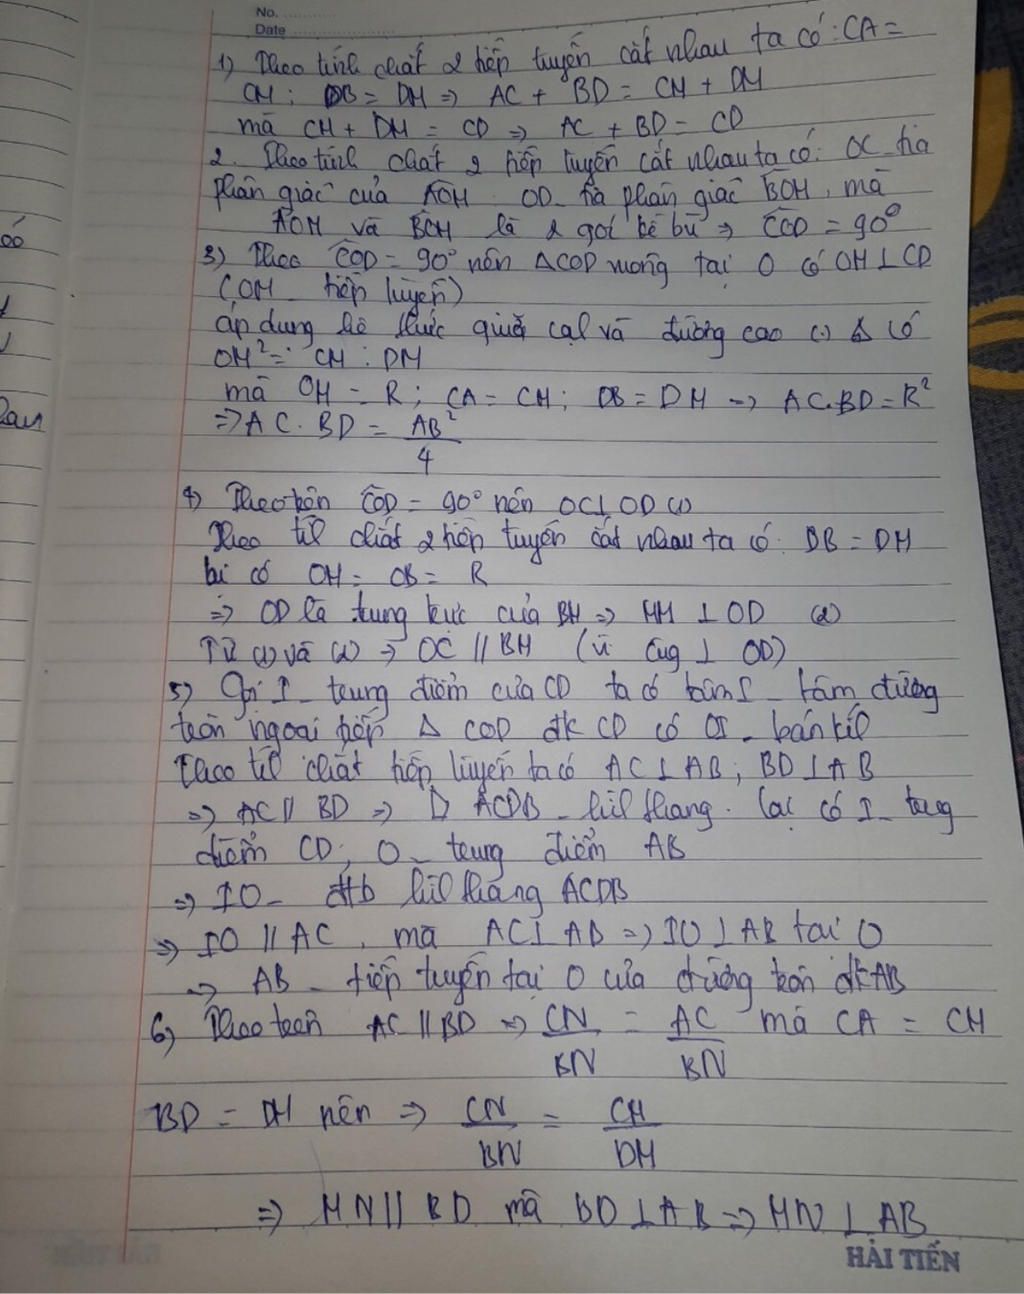 No.
Date
1) Theo tính chất 2 tiếp tuyến cắt nhau ta có : CA =
CM ; DB = DM => AC + BD = CM + DM
mà CM + DM = CD => AC + BD = CD
2. Theo tính chất 2 tiếp tuyến cắt nhau ta có: OC tia
phân giác của AOM OD tia phân giác BOM, mà
AOM và BOM là 2 góc kề bù => COD = 90°
3) Theo COD = 90° nên ΔCOD vuông tại O có OM ⊥ CD
(OM tiếp tuyến)
áp dụng hệ thức giữa cạnh và đường cao () Δ có
OM² = CM : DM
mà OM = R ; CA = CM ; DB = DM => AC.BD = R²
=> AC . BD = AB²/4
4) Theo trên COD = 90° nên OC ⊥ OD (1)
Theo t/c chất 2 tiếp tuyến cắt nhau ta có : DB = DM
lại có OM = OB = R
=> OD là trung trực của BM => BM ⊥ OD (2)
Từ (1) và (2) => OC // BM (vì cùg ⊥ OD)
5) Gọi I trung điểm của CD ta có I tâm đường
tròn ngoại tiếp Δ COD đk CD có OI bán kíh
Theo tíh chất tiếp tuyến ta có AC ⊥ AB ; BD ⊥ AB
=> AC // BD => ACDB hìh thang. Lại có I trug
điểm CD ; O trung điểm AB
=> IO đtb hìh thang ACDB
=> IO // AC, mà AC ⊥ AB => IO ⊥ AB tại O
=> AB tiếp tuyến tại O của đường tròn đk AB
6) Theo trên AC // BD => CN/BN = AC/BN mà CA = CM
BD = DM nên => CN/BN = CM/DM
=> MN // BD mà BD ⊥ AB => MN ⊥ AB
HẢI TIẾN